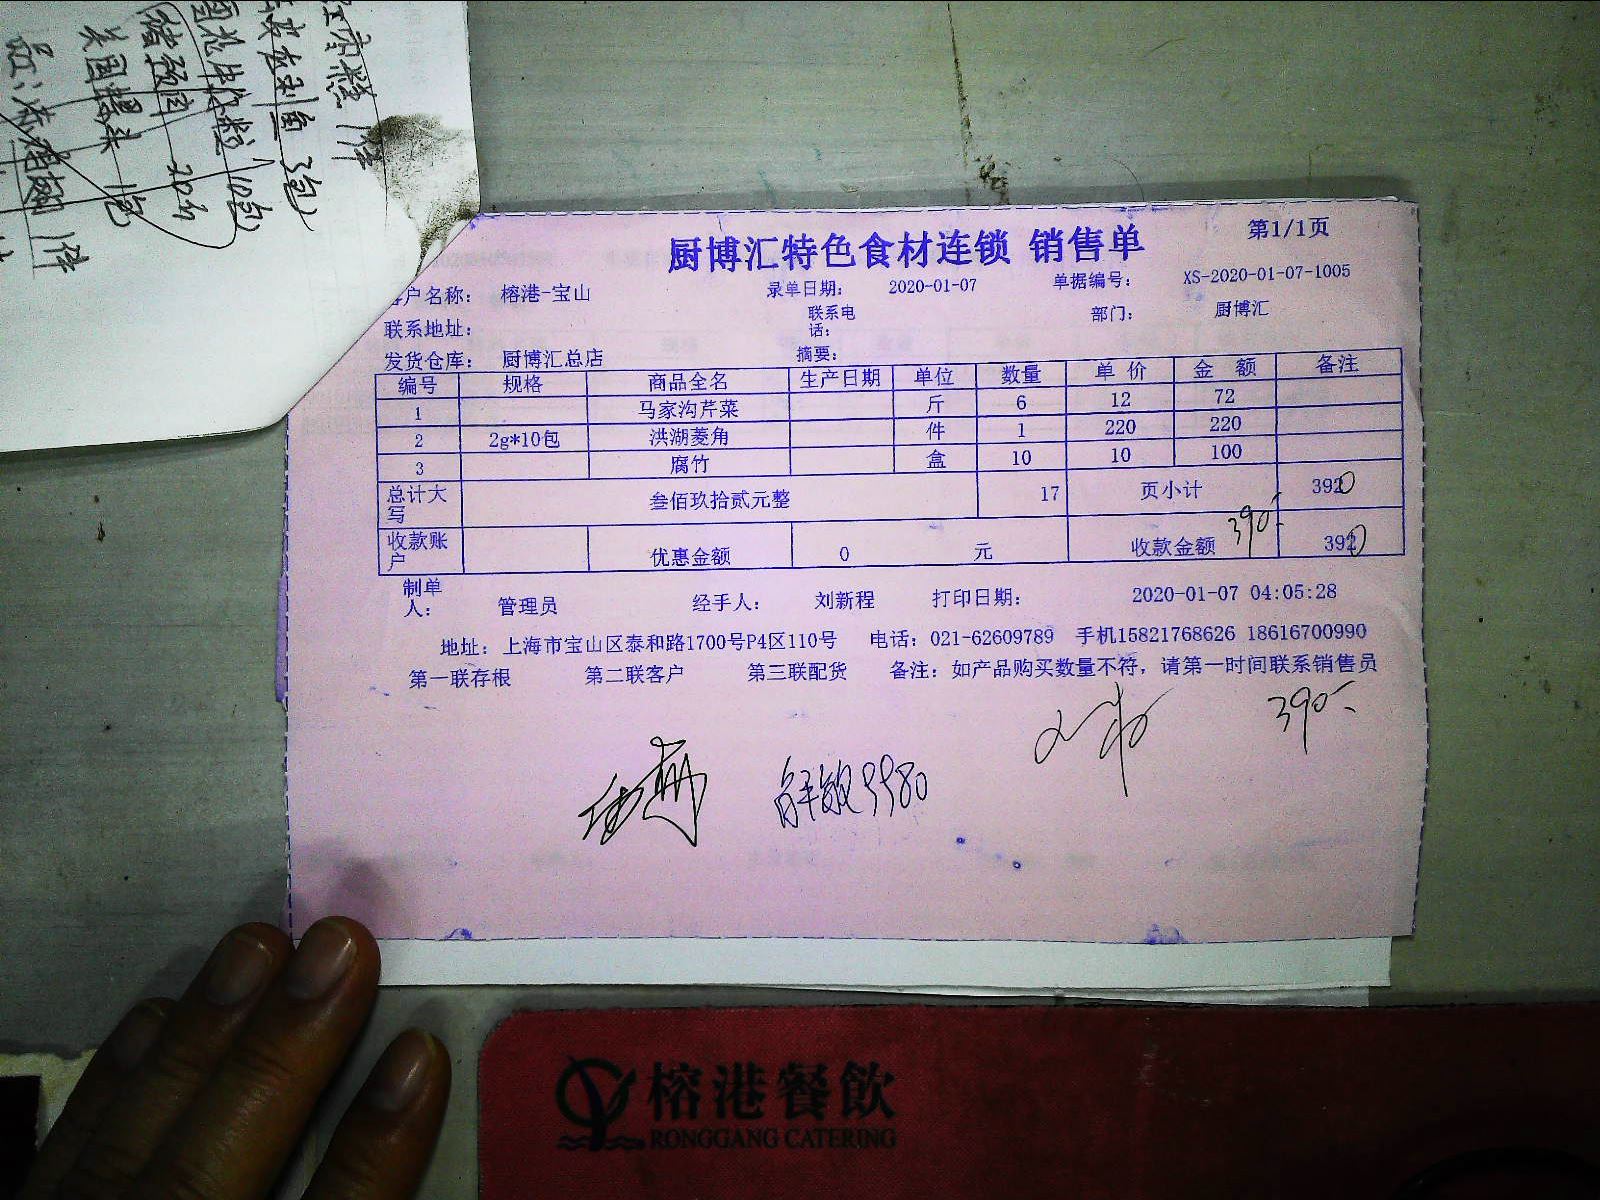 美国提头 1包
猪颈肉 20斤
厨博汇特色食材连锁 销售单
第1/1页
客户名称： 榕港-宝山 录单日期： 2020-01-07 单据编号： XS-2020-01-07-1005
联系地址： 联系电话： 部门： 厨博汇
发货仓库： 厨博汇总店 摘要：
编号 规格 商品全名 生产日期 单位 数量 单价 金额 备注
1 马家沟芹菜 斤 6 12 72
2 2g*10包 洪湖菱角 件 1 220 220
3 腐竹 盒 10 10 100
总计大写 叁佰玖拾贰元整 17 页小计 392
390-
收款账户 优惠金额 0 元 收款金额 392
制单人： 管理员 经手人： 刘新程 打印日期： 2020-01-07 04:05:28
地址：上海市宝山区泰和路1700号P4区110号 电话：021-62609789 手机15821768626 18616700990
第一联存根 第二联客户 第三联配货 备注：如产品购买数量不符，请第一时间联系销售员
390-
9980
榕港餐飲
RONGGANG CATERING